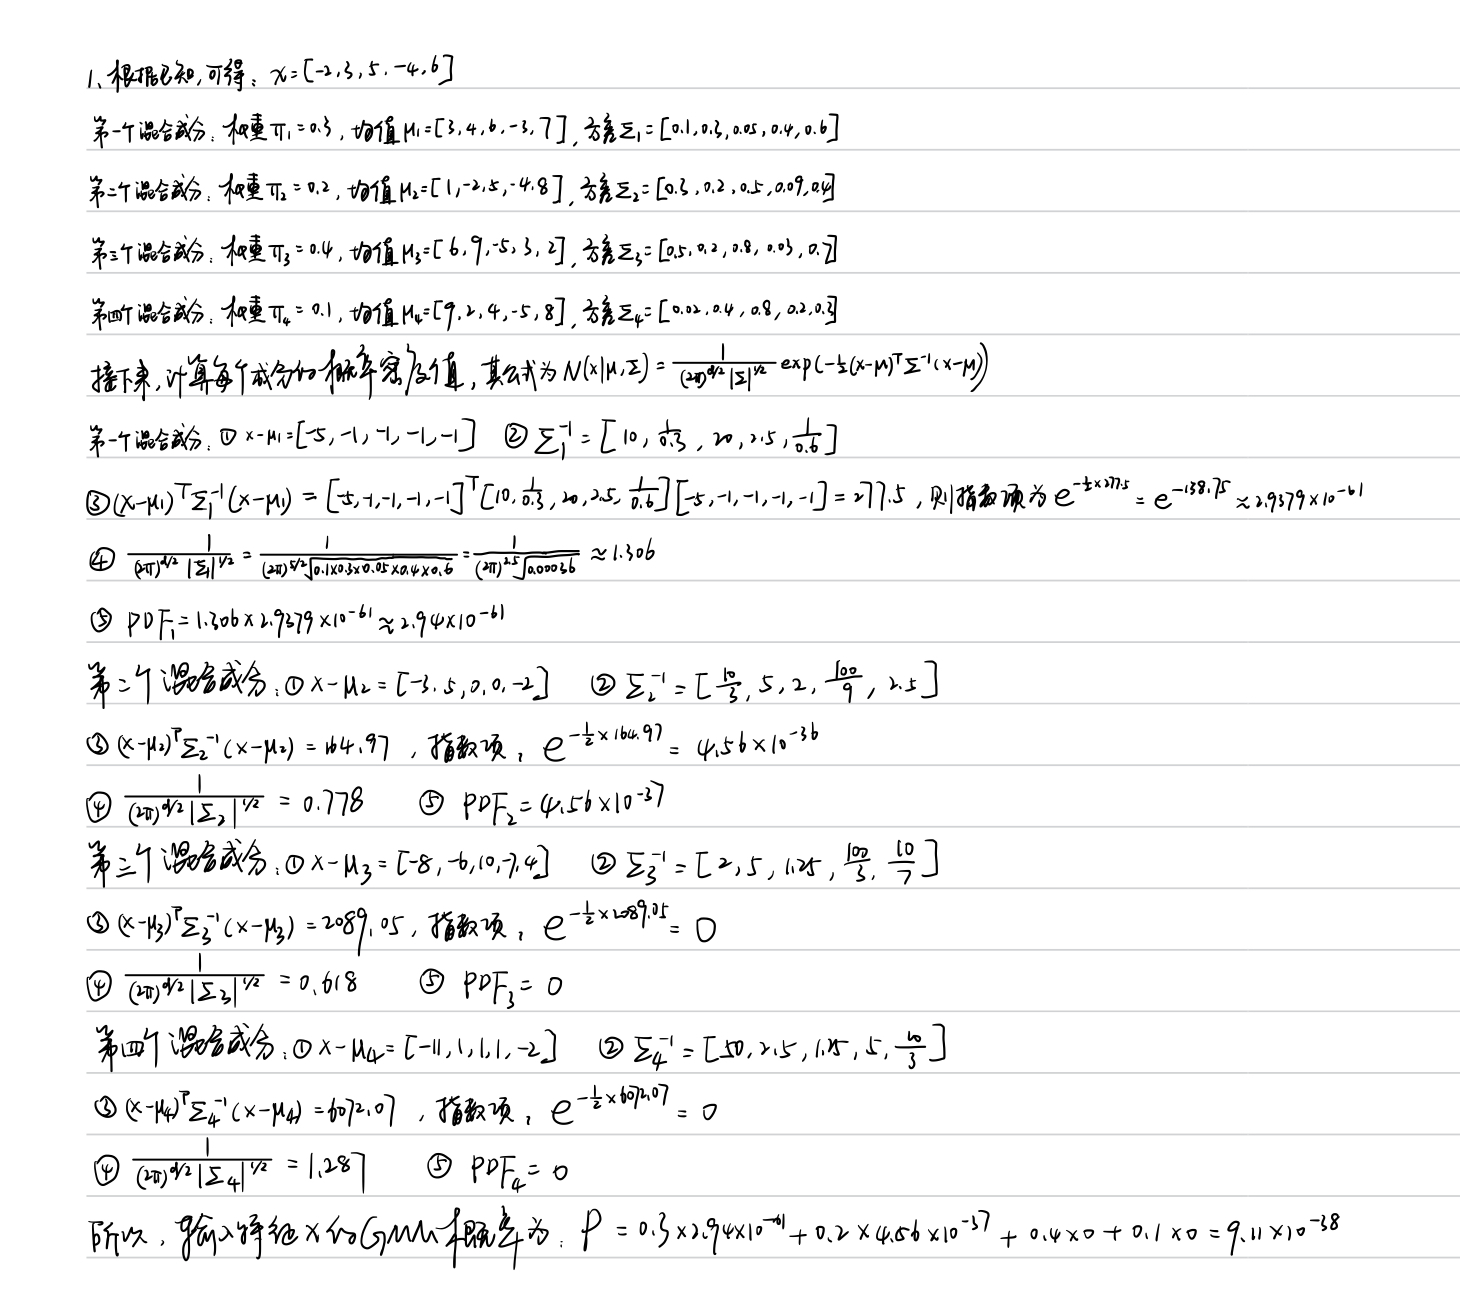 1、根据已知,可得: x=[-2,3,5,-4,6]
第一个混合成分: 权重 π₁=0.3, 均值 μ₁=[3,4,6,-3,7], 方差Σ₁=[0.1,0.3,0.05,0.4,0.6]
第二个混合成分: 权重 π₂=0.2, 均值 μ₂=[1,-2,5,-4,8], 方差Σ₂=[0.3,0.2,0.5,0.09,0.4]
第三个混合成分: 权重 π₃=0.4, 均值 μ₃=[6,9,-5,3,2], 方差Σ₃=[0.5,0.2,0.8,0.03,0.7]
第四个混合成分: 权重 π₄=0.1, 均值 μ₄=[9,2,4,-5,8], 方差Σ₄=[0.02,0.4,0.8,0.2,0.3]
接下来,计算每个成分的概率密度值,其公式为 N(x|μ,Σ) = 1/((2π)^(d/2) |Σ|^(1/2)) exp(-½(x-μ)ᵀ Σ⁻¹ (x-μ))
第一个混合成分: ① x-μ₁=[-5,-1,-1,-1,-1] ② Σ₁⁻¹ = [10, 1/0.3, 20, 2.5, 1/0.6]
③ (x-μ₁)ᵀ Σ₁⁻¹ (x-μ₁) = [-5,-1,-1,-1,-1]ᵀ [10, 1/0.3, 20, 2.5, 1/0.6] [-5,-1,-1,-1,-1] = 277.5, 则指数项为 e^(-½×277.5) = e^(-138.75) ≈ 2.9379×10⁻⁶¹
④ 1/((2π)^(d/2) |Σ₁|^(1/2)) = 1/((2π)^(5/2) √(0.1×0.3×0.05×0.4×0.6)) = 1/((2π)^2.5 √0.00036) ≈ 1.306
⑤ PDF₁ = 1.306×2.9379×10⁻⁶¹ ≈ 2.94×10⁻⁶¹
第二个混合成分: ① x-μ₂ = [-3,5,0,0,-2] ② Σ₂⁻¹ = [10/3, 5, 2, 100/9, 2.5]
③ (x-μ₂)ᵀ Σ₂⁻¹ (x-μ₂) = 164.97, 指数项: e^(-½×164.97) = 4.56×10⁻³⁶
④ 1/((2π)^(d/2) |Σ₂|^(1/2)) = 0.778 ⑤ PDF₂ = 4.56×10⁻³⁷
第三个混合成分: ① x-μ₃ = [-8,-6,10,-7,4] ② Σ₃⁻¹ = [2, 5, 1.25, 100/3, 10/7]
③ (x-μ₃)ᵀ Σ₃⁻¹ (x-μ₃) = 2089.05, 指数项: e^(-½×2089.05) = 0
④ 1/((2π)^(d/2) |Σ₃|^(1/2)) = 0.618 ⑤ PDF₃ = 0
第四个混合成分: ① x-μ₄ = [-11,1,1,1,-2] ② Σ₄⁻¹ = [50, 2.5, 1.25, 5, 10/3]
③ (x-μ₄)ᵀ Σ₄⁻¹ (x-μ₄) = 6072.07, 指数项: e^(-½×6072.07) = 0
④ 1/((2π)^(d/2) |Σ₄|^(1/2)) = 1.287 ⑤ PDF₄ = 0
所以, 输入特征 x 的 GMM 概率为: P = 0.3×2.94×10⁻⁶¹ + 0.2×4.56×10⁻³⁷ + 0.4×0 + 0.1×0 = 9.11×10⁻³⁸